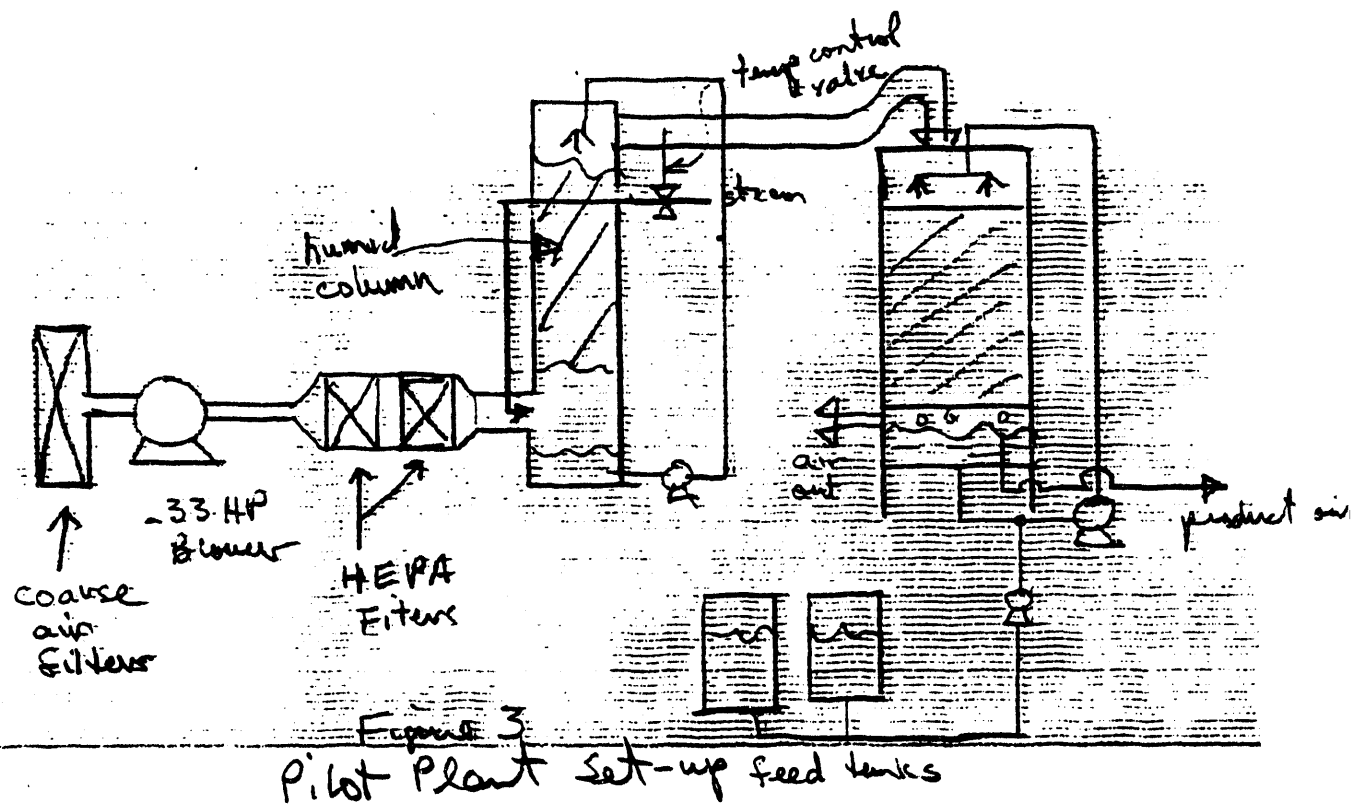 temp control
valve
steam
humid
column
air
out
product air
.33 HP
Blower
HEPA
Filters
coarse
air
filters
Figure 3
Pilot Plant Set-up feed tanks